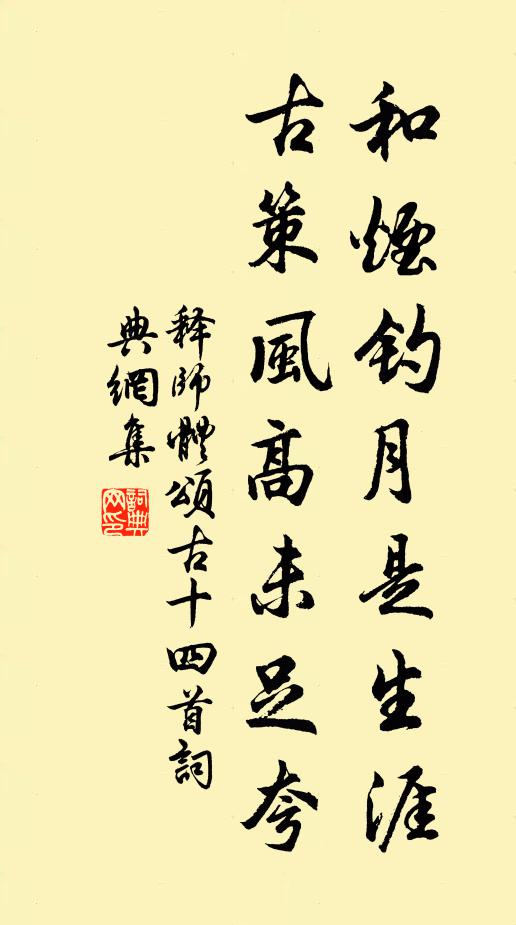 和煙釣月是生涯
古策風高未足夸
释师體頌古十四首詞
典網集
詞典网印